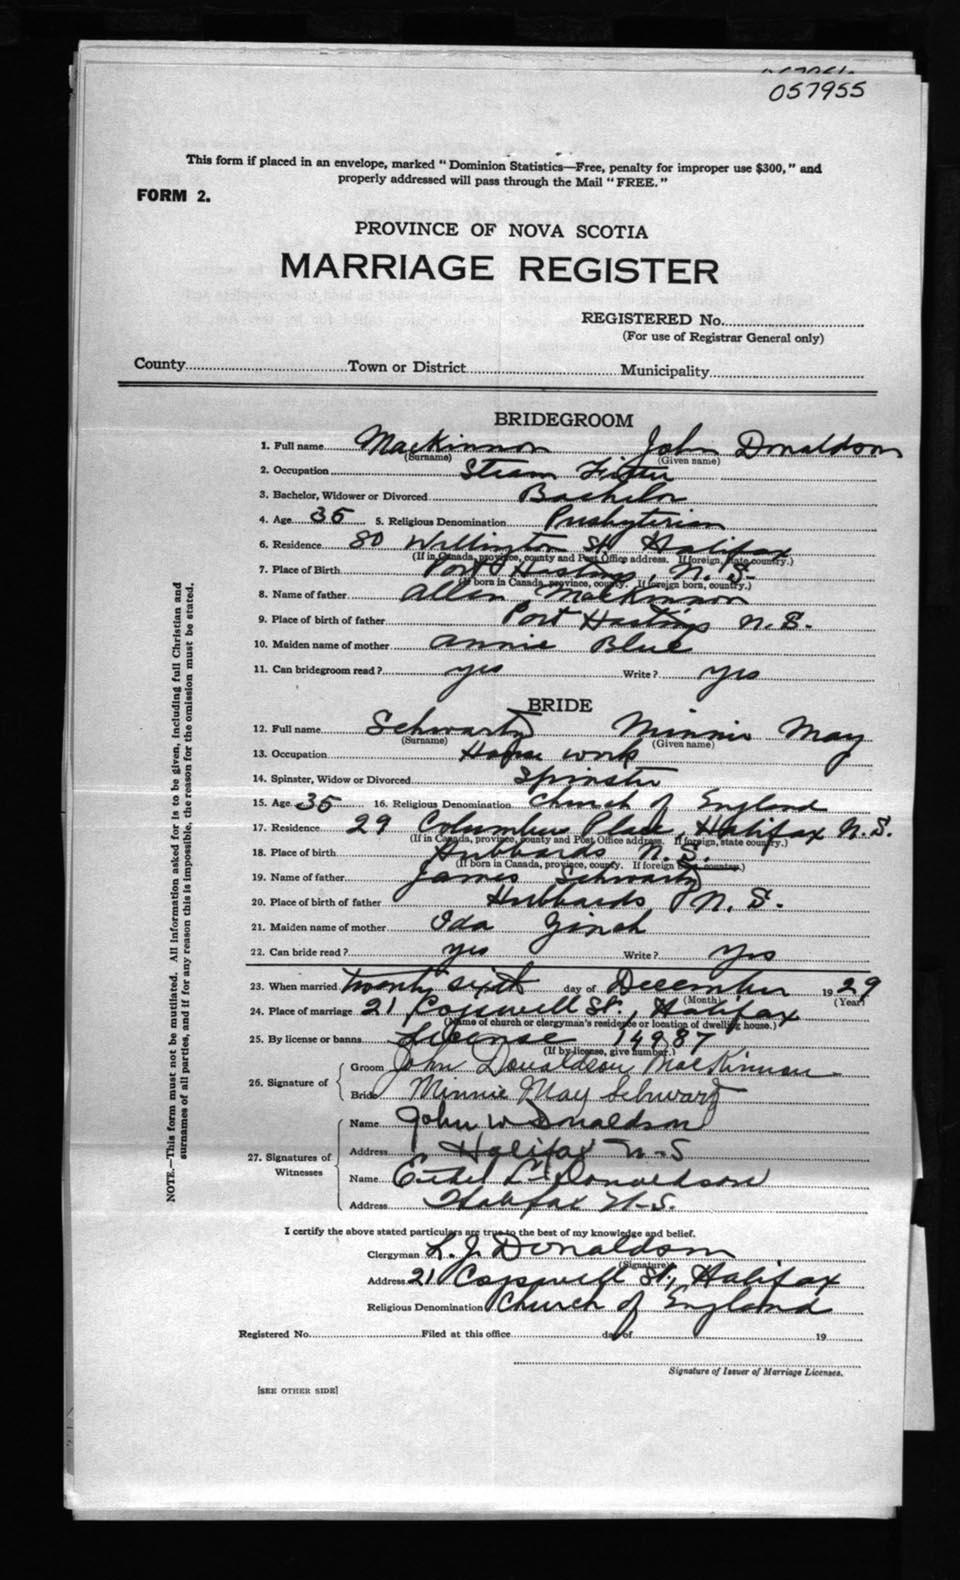 057955
This form if placed in an envelope, marked "Dominion Statistics—Free, penalty for improper use $300," and
properly addressed will pass through the Mail "FREE."
FORM 2.
PROVINCE OF NOVA SCOTIA
MARRIAGE REGISTER
REGISTERED No.
(For use of Registrar General only)
County Town or District Municipality
BRIDEGROOM
1. Full name MacKinnon John Donaldson
(Surname) (Given name)
2. Occupation Steam Fitter
3. Bachelor, Widower or Divorced Bachelor
4. Age 35 5. Religious Denomination Presbyterian
6. Residence 80 Wellington St, Halifax
(If in Canada, province, county and Post Office address. If foreign, state country.)
7. Place of Birth Port Hastings, N.S.
(If born in Canada, province, county. If foreign born, country.)
8. Name of father Allan MacKinnon
9. Place of birth of father Port Hastings N.S.
10. Maiden name of mother Annie Blue
11. Can bridegroom read? yes Write? yes
BRIDE
12. Full name Schwartz Minnie May
(Surname) (Given name)
13. Occupation House work
14. Spinster, Widow or Divorced Spinster
15. Age 35 16. Religious Denomination Church of England
17. Residence 29 Columbus Place, Halifax N.S.
(If in Canada, province, county and Post Office address. If foreign, state country.)
18. Place of birth Hubbards N.S.
(If born in Canada, province, county. If foreign state country.)
19. Name of father James Schwartz
20. Place of birth of father Hubbards, N.S.
21. Maiden name of mother Ida
22. Can bride read? yes Write? Yes
23. When married twenty sixth day of December 1929
(Month) (Year)
24. Place of marriage 21 Cogswell St., Halifax
(Name of church or clergyman's residence or location of dwelling house.)
25. By license or banns License 14987
(If by license, give number.)
26. Signature of Groom John Donaldson MacKinnon
Bride Minnie May Schwartz
27. Signatures of Witnesses Name John W Donaldson
Address Halifax N-S
Name Ethel L. Donaldson
Address Halifax N-S.
I certify the above stated particulars are true to the best of my knowledge and belief.
Clergyman L. J. Donaldson
(Signature)
Address 21 Cogswell St, Halifax
Religious Denomination Church of England
Registered No. Filed at this office day of 19
Signature of Issuer of Marriage Licenses.
[SEE OTHER SIDE]
NOTE.—This form must not be mutilated. All information asked for is to be given, including full Christian and
surnames of all parties, and if for any reason this is impossible, the reason for the omission must be stated.